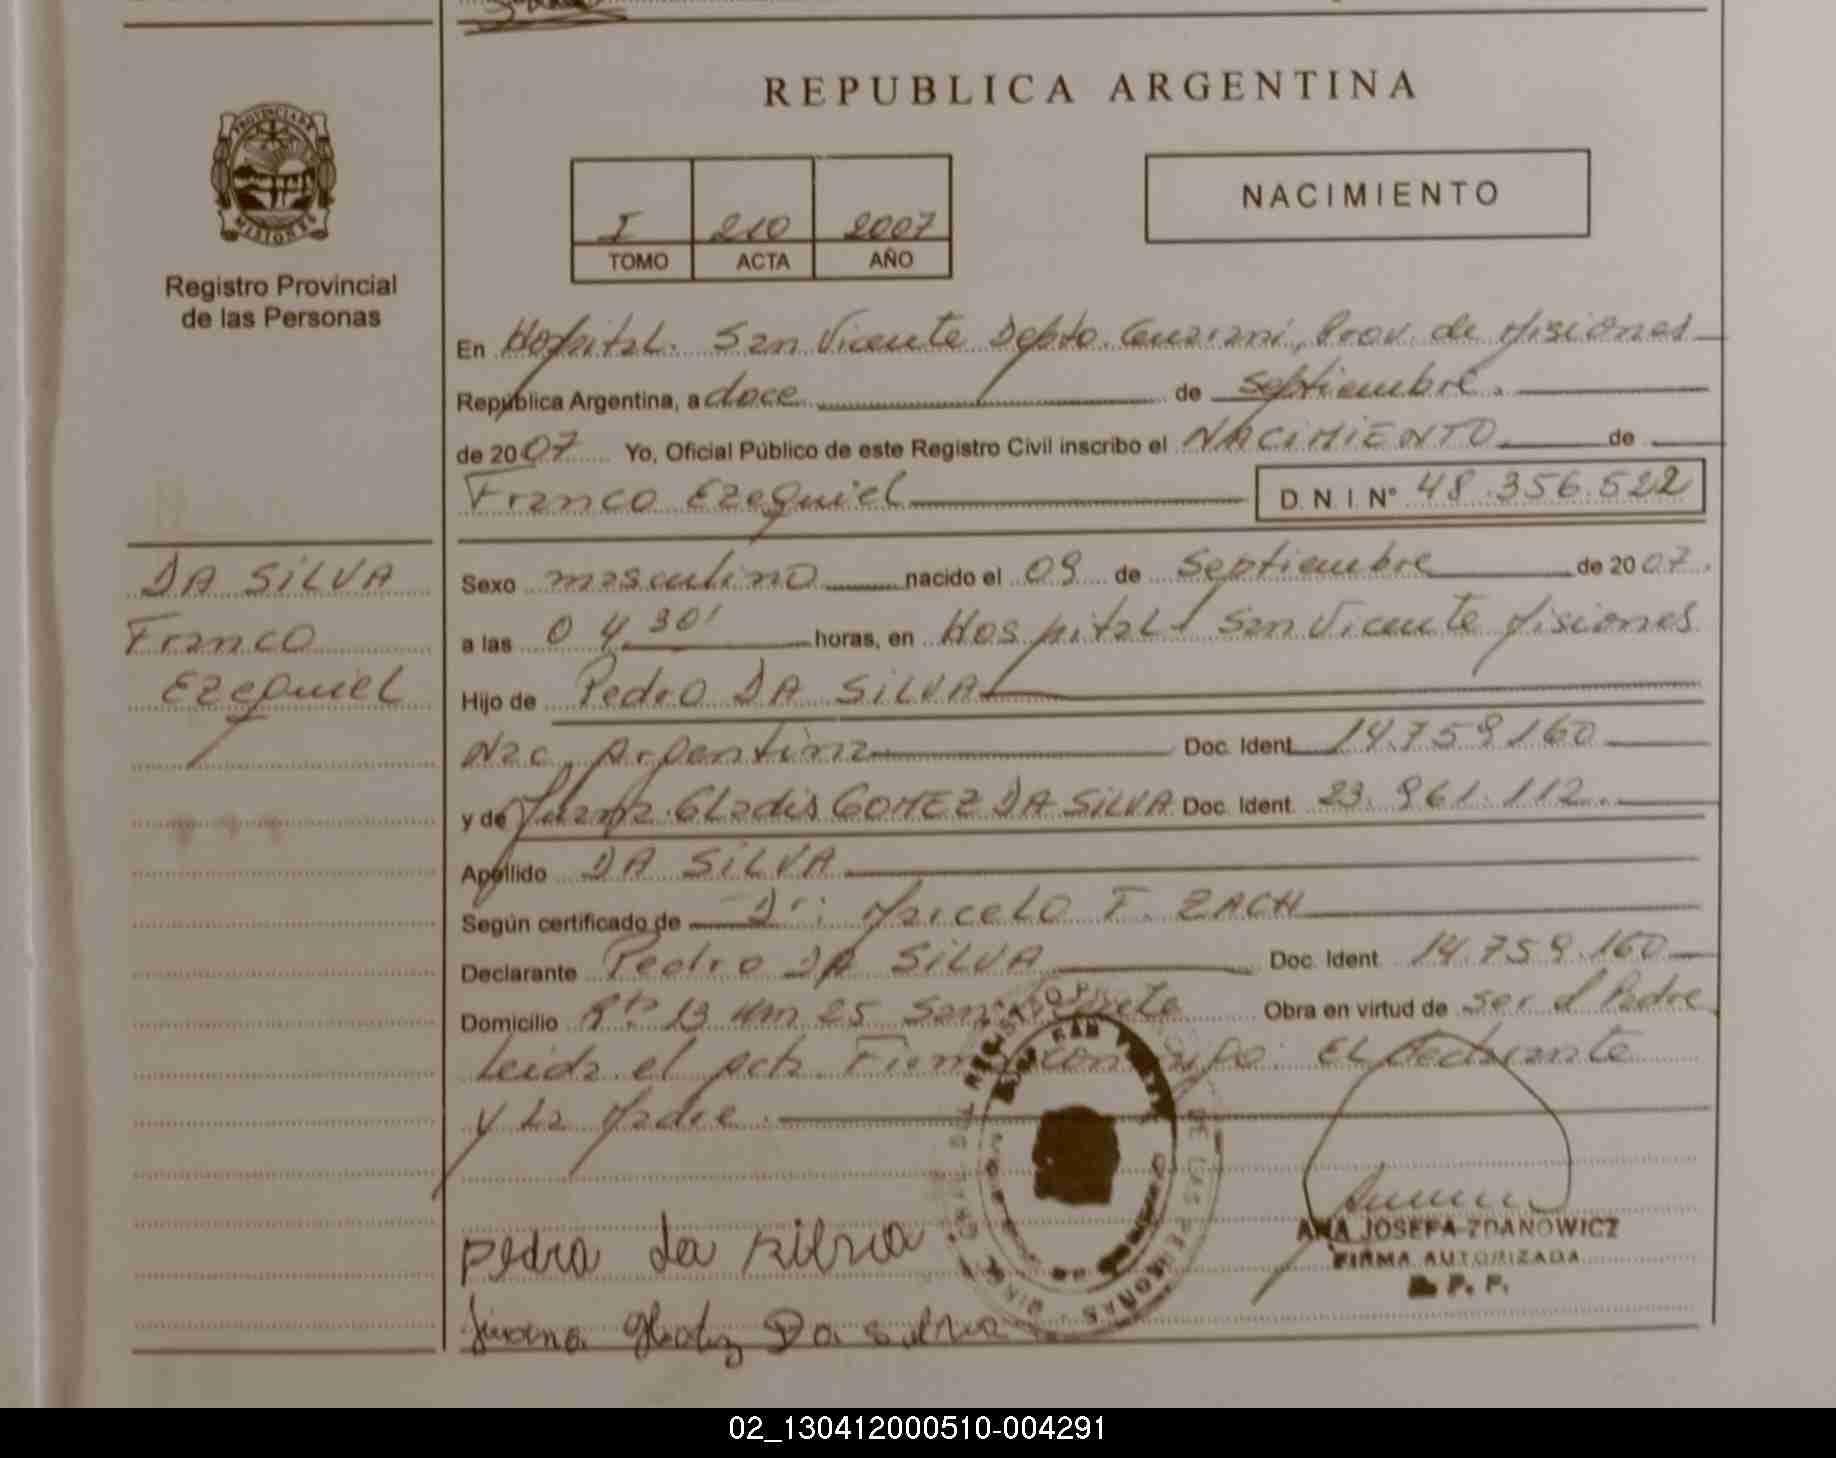 REPUBLICA ARGENTINA
PROVINCIA DE
MISIONES
Registro Provincial
de las Personas
I 210 2007
TOMO ACTA AÑO
NACIMIENTO
En Hospital. San Vicente Depto. Guarani, Prov. de Misiones
República Argentina, a doce de septiembre.
de 2007 Yo, Oficial Público de este Registro Civil inscribo el NACIMIENTO de
Franco Ezequiel D. N. I. N° 48.356.522
DA SILVA
Franco
Ezequiel
Sexo masculino nacido el 09 de Septiembre de 2007.
a las 04 30' horas, en Hospital San Vicente Misiones
Hijo de Pedro DA SILVA
Nac. Argentina Doc. Ident. 14.759.160
y de Juana Gladis GOMEZ DA SILVA Doc. Ident. 23.961.112.
Apellido DA SILVA
Según certificado de Dr: Marcelo F. ZACH
Declarante Pedro DA SILVA Doc. Ident. 14.759.160
Domicilio Rta 13 km 25 San Vicente Obra en virtud de ser el Padre
Leida el acta Firma conmigo El declarante
y La Madre.
Pedro da silvia
Juana Gladiz Da silvia
ANA JOSEFA ZDANOWICZ
FIRMA AUTORIZADA
R. P. P.
02_130412000510-004291